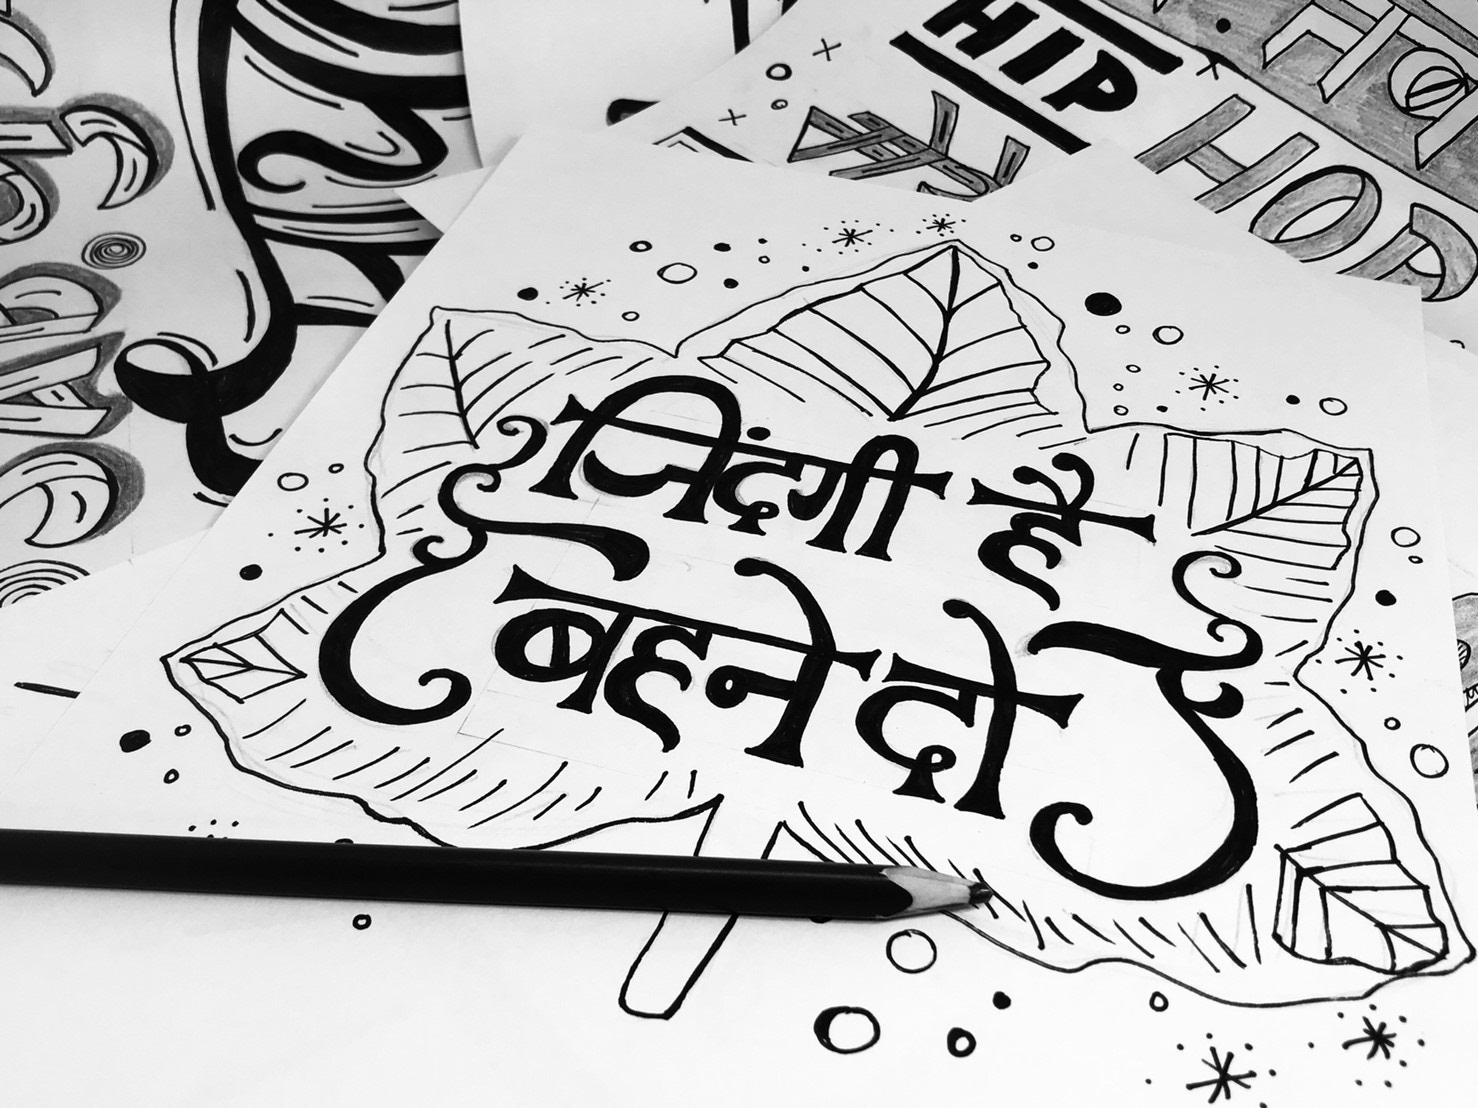 HIP
HOP
जिंदगी है
बहने दो